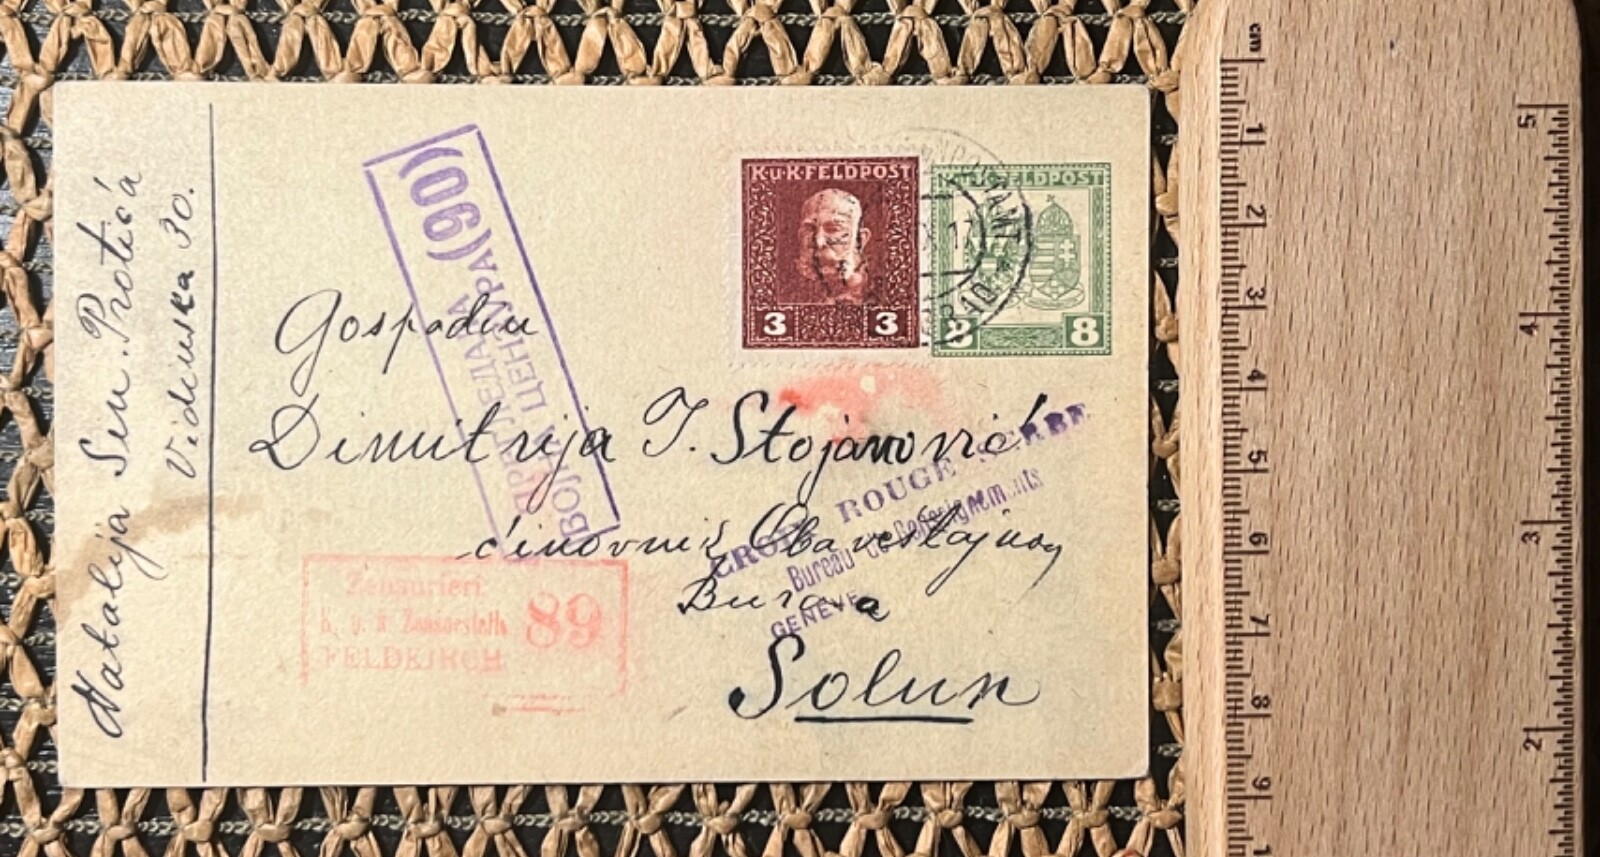 Natalija Sim. Protića
Videnska 30.
(90)
ПРЕГЛЕДАЛА
ВОЈНА ЦЕНЗУРА
K.u.K.FELDPOST
3 3
K.u.K.FELDPOST
8 8
Gospodin
Dimitrija J. Stojanović
činovnik Obaveštajnog
Buroa
Solun
CROIX ROUGE SERBE
Bureau de Renseignements
GENÈVE
Zensuriert
k. u. k. Zensurstelle
FELDKIRCH
89
cm
1
2
3
4
5
6
7
8
9
5
4
3
2